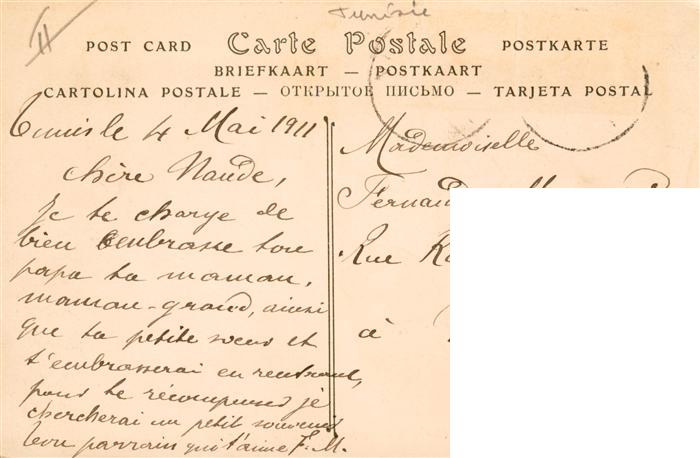 Tunisie
11
POST CARD Carte Postale POSTKARTE
BRIEFKAART — POSTKAART
CARTOLINA POSTALE — ОТКРЫТОЕ ПИСЬМО — TARJETA POSTAL
Tunis le 4 Mai 1911
Chère Nande,
Je te charge de
bien embrasse ton
papa ta maman,
maman-grand, ainsi
que ta petite soeur et
t'embrasserai en rentrant,
pour te récompenser je
chercherai un petit souvenir
ton parrain qui t'aime F. M.
Mademoiselle
Fernand
Rue
à